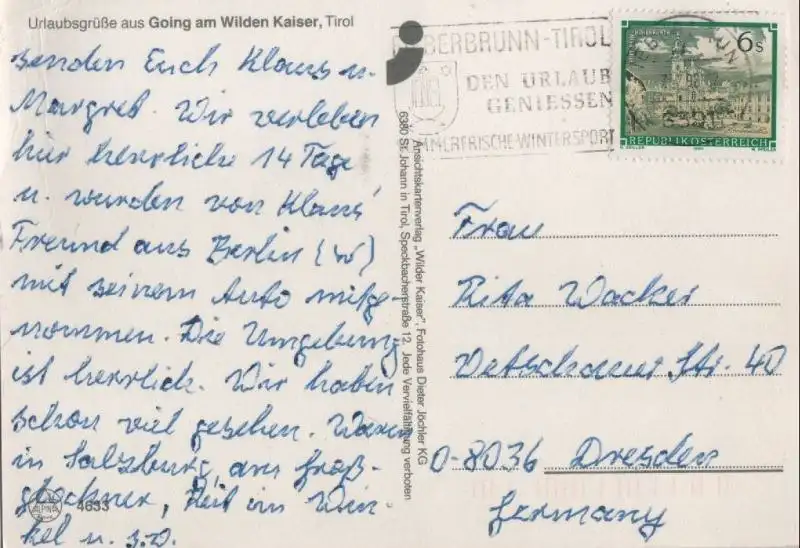 Urlaubsgrüße aus Going am Wilden Kaiser, Tirol
senden Euch Klaus u.
Margret. Wir verleben
hier herrliche 14 Tage
u. wurden von Klaus'
Freund aus Berlin (W)
mit seinem Auto mitge-
nommen. Die Umgebung
ist herrlich. Wir haben
schon viel gesehen. Waren
in Salzburg, am Groß-
glockner, Reit im Win-
kel u. s. w.
ALPINA
4633
Ansichtskartenverlag „Wilder Kaiser", Fotohaus Dieter Jöchler KG
6380 St. Johann in Tirol, Speckbacherstraße 12. Jede Vervielfältigung verboten
BERBRUNN-TIROL
DEN URLAUB
GENIESSEN
MERFRISCHE-WINTERSPORT
6391
6 s
REPUBLIK ÖSTERREICH
Frau
Rita Wacker
Str. 40
O-8036 Dresden
Germany